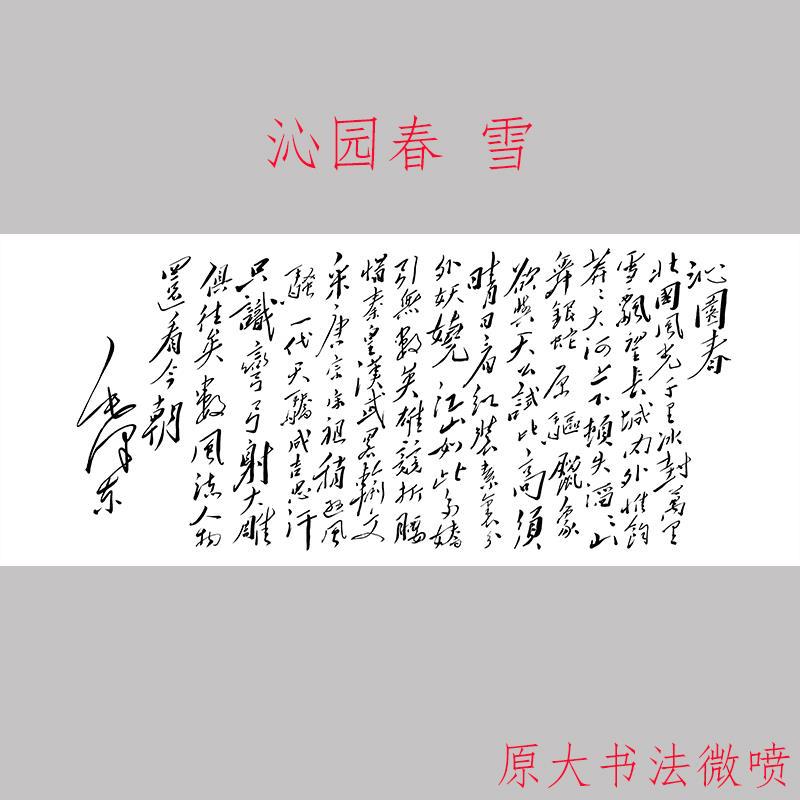 沁园春 雪
沁園春
北國風光千里冰封萬里
雪飄望長城内外惟餘
莽〻大河上下頓失滔〻山
舞銀蛇原驅蠟象
欲與天公試比高須
晴日看红裝素裹分
外妖嬈江山如此多嬌
引無數英雄競折腰
惜秦皇漢武畧輸文
采唐宗宋祖稍遜風
騷一代天驕成吉思汗
只識彎弓射大雕
俱往矣數風流人物
還看今朝
毛澤东
原大书法微喷